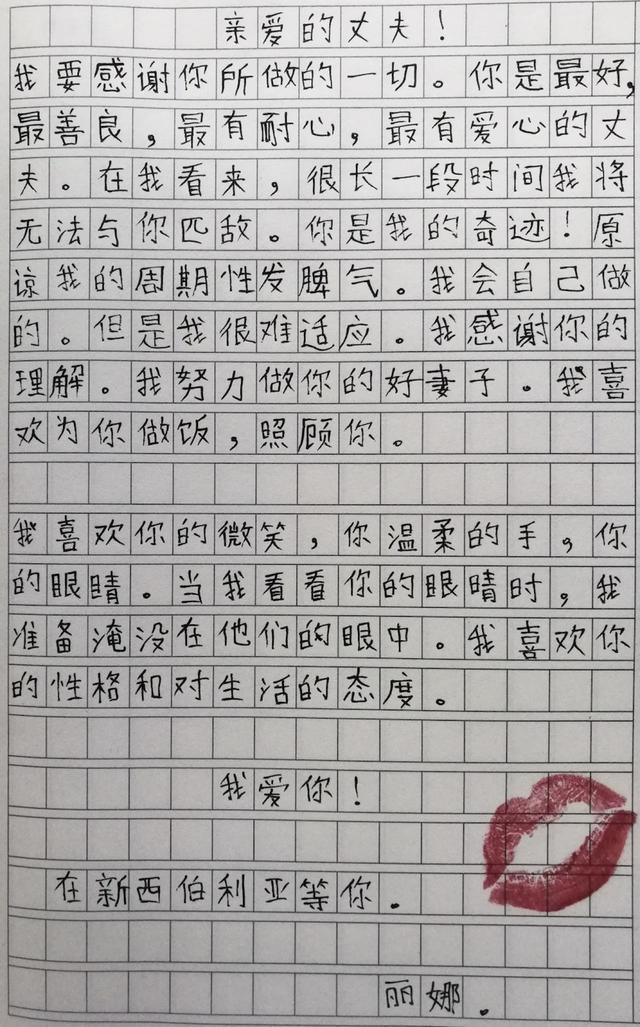 亲爱的丈夫！
我要感谢你所做的一切。你是最好，
最善良，最有耐心，最有爱心的丈
夫。在我看来，很长一段时间我将
无法与你匹敌。你是我的奇迹！原
谅我的周期性发脾气。我会自己做
的。但是我很难适应。我感谢你的
理解。我努力做你的好妻子。我喜
欢为你做饭，照顾你。
我喜欢你的微笑，你温柔的手，你
的眼睛。当我看看你的眼睛时，我
准备淹没在他们的眼中。我喜欢你
的性格和对生活的态度。
我爱你！
在新西伯利亚等你。
丽娜。